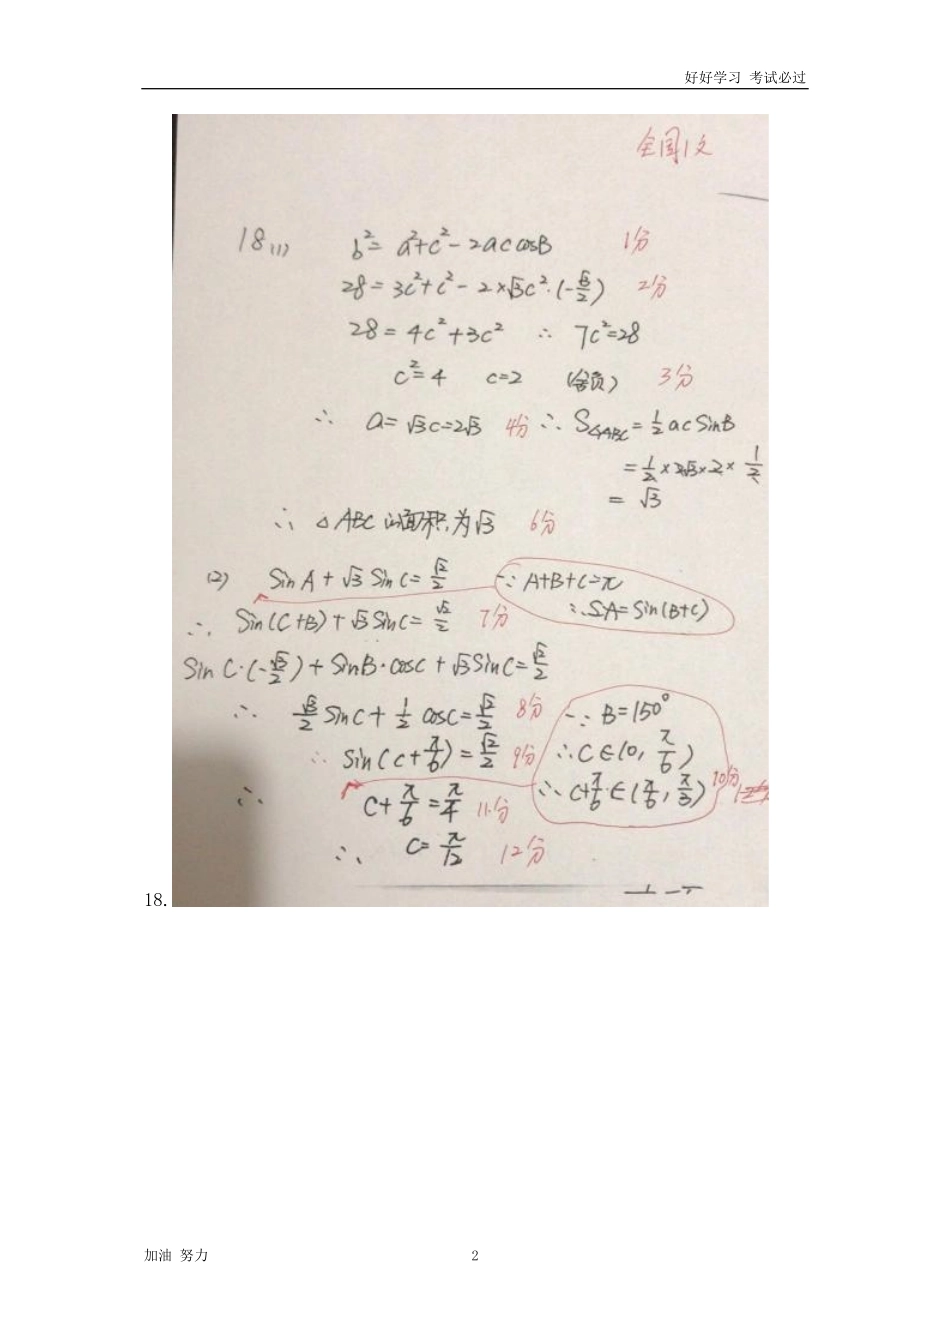 好好学习 考试必过
全国1文
18(1) b²=a²+c²-2accosB 1分
28=3c²+c²-2×√3c²·(-√3/2) 2分
28=4c²+3c² ∴ 7c²=28
c²=4 c=2 (舍负) 3分
∴ a=√3c=2√3 4分 ∴ S△ABC=1/2acSinB
=1/2×2√3×2×1/2
=√3
∴ △ABC的面积为√3 6分
(2) SinA+√3SinC=√2/2 ∵A+B+C=π
∴SA=Sin(B+C)
∴ Sin(C+B)+√3SinC=√2/2 7分
SinC·(-√3/2)+SinB·cosC+√3SinC=√2/2
∴ √3/2SinC+1/2cosC=√2/2 8分 ∵B=150°
∴ Sin(C+π/6)=√2/2 9分 ∴C∈(0,π/6)
∴ C+π/6=π/4 11分 ∴C+π/6∈(π/6,π/3) 10分
∴ C=π/12 12分
18.
加油 努力 2